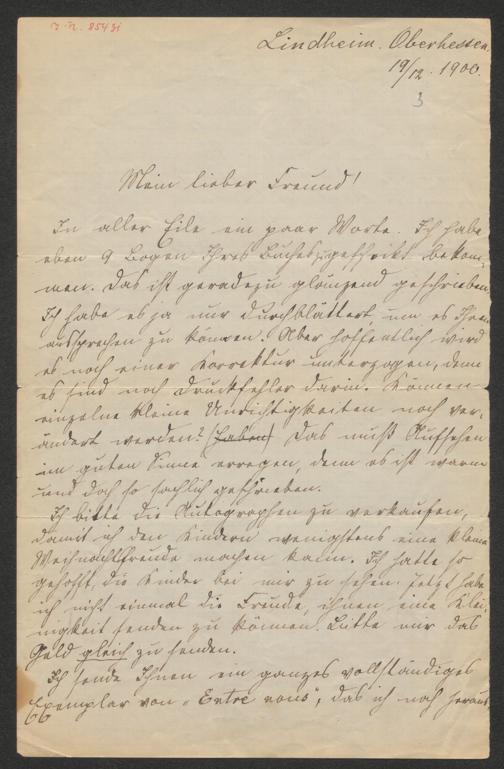 J. N. 85431
Lindheim. Oberhessen.
19/12. 1900.
3
Mein lieber Freund!
In aller Eile ein paar Worte. Ich habe
eben 9 Bogen Ihres Buches geschickt bekom-
men. Das ist geradezu glänzend geschrieben.
Ich habe es ja nur durchblättert um es Ihnen
aussprechen zu können. Aber hoffentlich wird
es noch einer Korrektur unterzogen, denn
es sind noch Druckfehler darin. Können
einzelne kleine Unrichtigkeiten noch ver-
ändert werden? (Haben) Das muß Aufsehen
im guten Sinne erregen, denn es ist warm
und doch so sachlich geschrieben.
Ich bitte die Autographen zu verkaufen,
damit ich den Kindern wenigstens eine kleine
Weihnachtsfreude machen kann. Ich hatte so
gehofft, die Kinder bei mir zu sehen. Jetzt habe
ich nicht einmal die Freude, ihnen eine Klei-
nigkeit senden zu können. Bitte mir das
Geld gleich zu senden.
Ich sende Ihnen ein ganzes vollständiges
Exemplar von "Entre nous", das ich noch heraus-